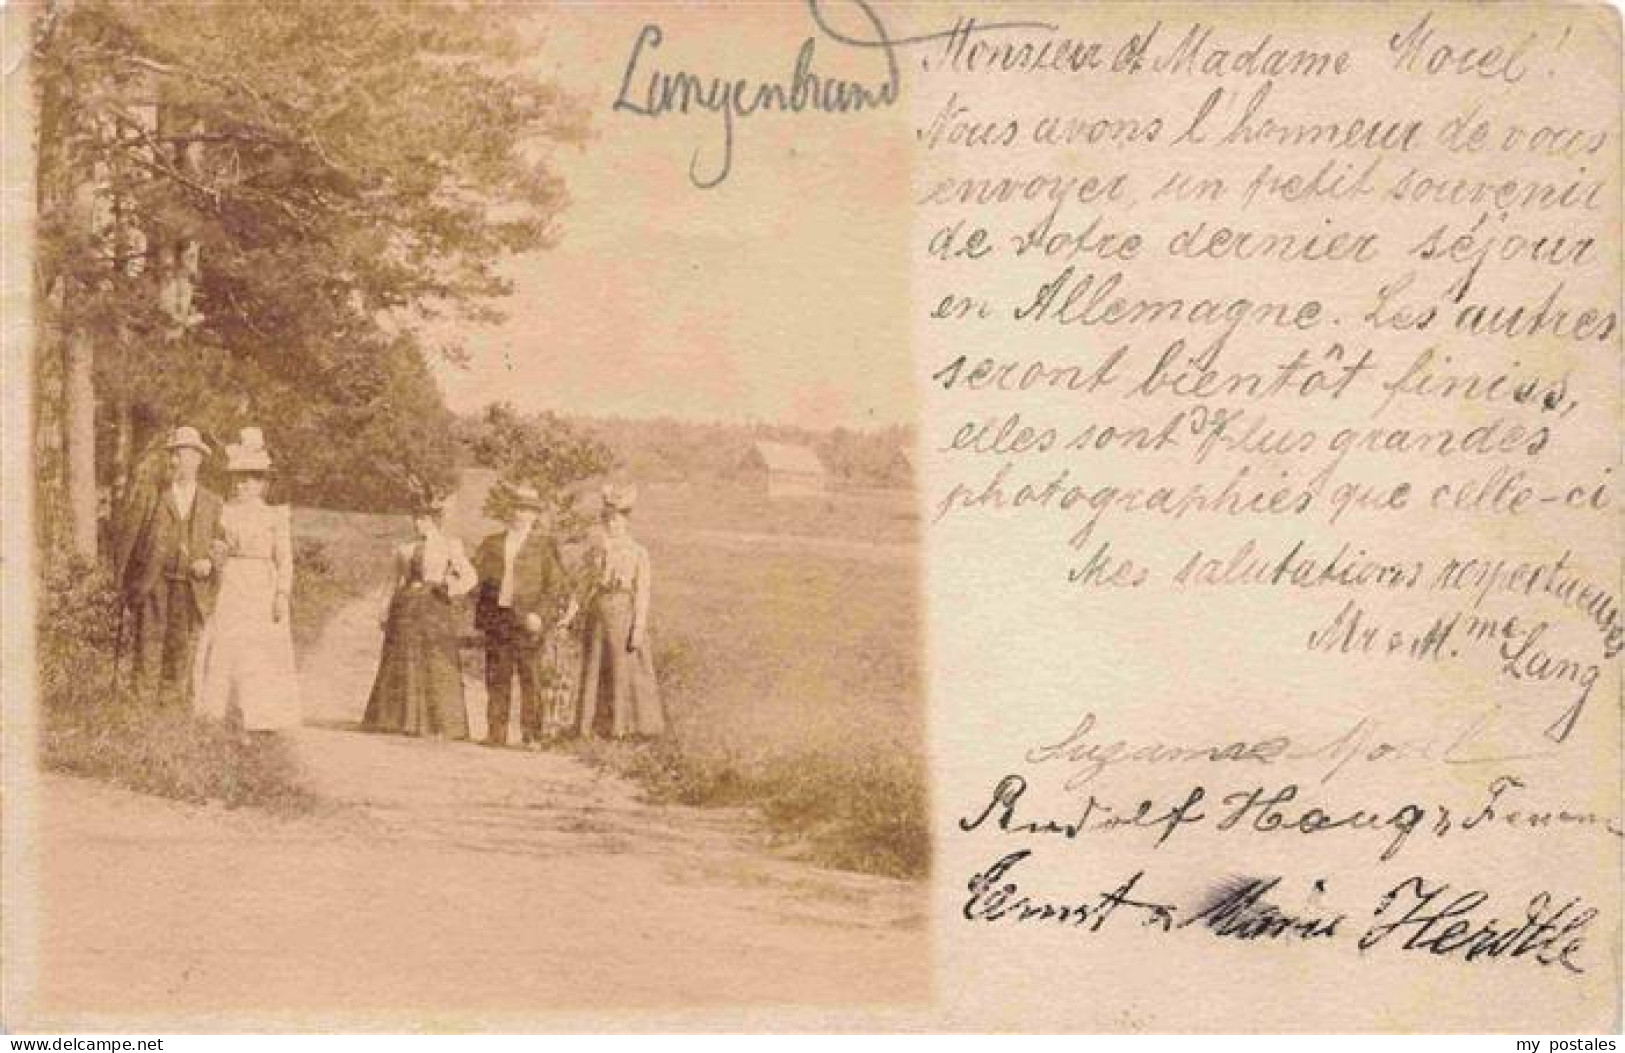 Langenbrand
Monsieur et Madame Morel!
Nous avons l'honneur de vous
envoyer, un petit souvenir
de votre dernier séjour
en Allemagne. Les autres
seront bientôt finies,
elles sont de plus grandes
photographies que celle-ci
Mes salutations respectueuses
Mr & M.me Lang
Suzanne Morel
Rudolf Haug & Femme
Ernst & Marie Herdtle
delcampe.net
my_postales